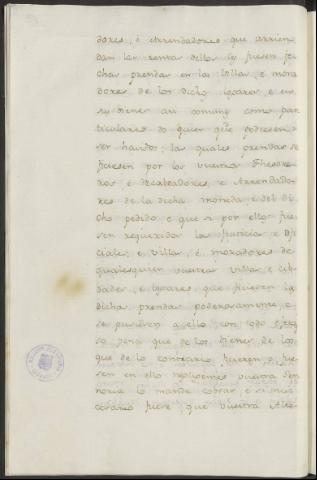 dores, é Arrendadores que arrien
dan las rentas dellos ly fuesen fe
chas prendas en las Villas, e mora
dores de los dichos Logares, e en
sus bienes asi comunes como par
ticulares do quier que pudiesen
ser havidos: las quales prendas se
ficiesen por los vuestros Thesore
ros, é Recabdadores, e Arrendado
res de la dicha moneda, e del di
cho pedido e que si por ellos fue
sen requeridas las Justicias e Ofi
ciales, e Villas, é moradores de
qualesquier vuestras Villas e Cib
dades, e Logares que fuesen la
dicha prenda poderosamente, e
se pusieren a ello, con todo
so pena que de los bienes de los
que de lo contrario ficieren o fue
sen en ello negligentes vuestra Sen
noria lo mande cobrar, e si nes
cesario fuere, que vuestra Alte